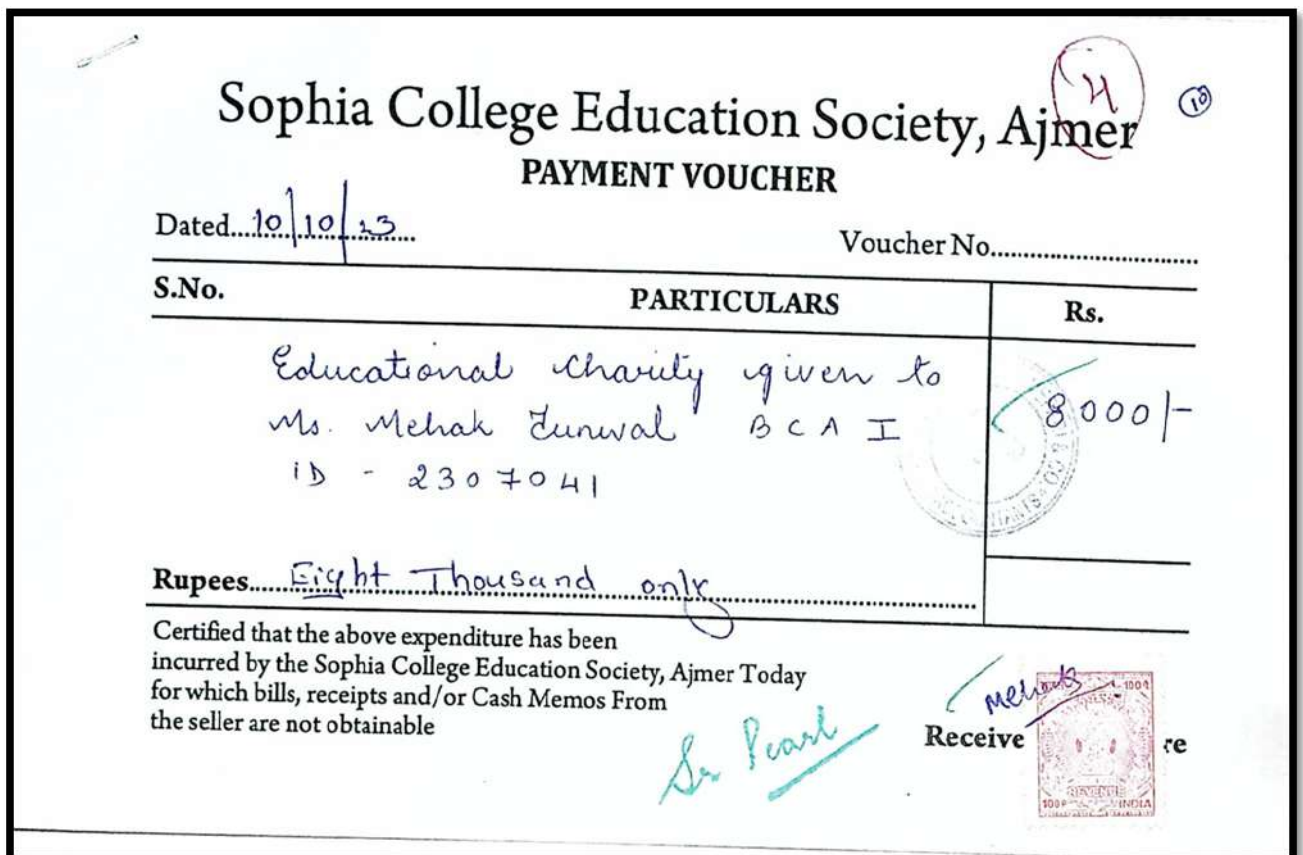 H
10
Sophia College Education Society, Ajmer
PAYMENT VOUCHER
Dated....10/10/23....
Voucher No.
S.No. PARTICULARS Rs.
Educational Charity given to 8000/-
Ms. Mehak BCA I
ID - 2307041
ACCOUNTANTS
Rupees.....Eight Thousand only
Certified that the above expenditure has been
incurred by the Sophia College Education Society, Ajmer Today
for which bills, receipts and/or Cash Memos From
the seller are not obtainable
Sr Pearl
Mehak
Receive re
REVENUE
100P INDIA